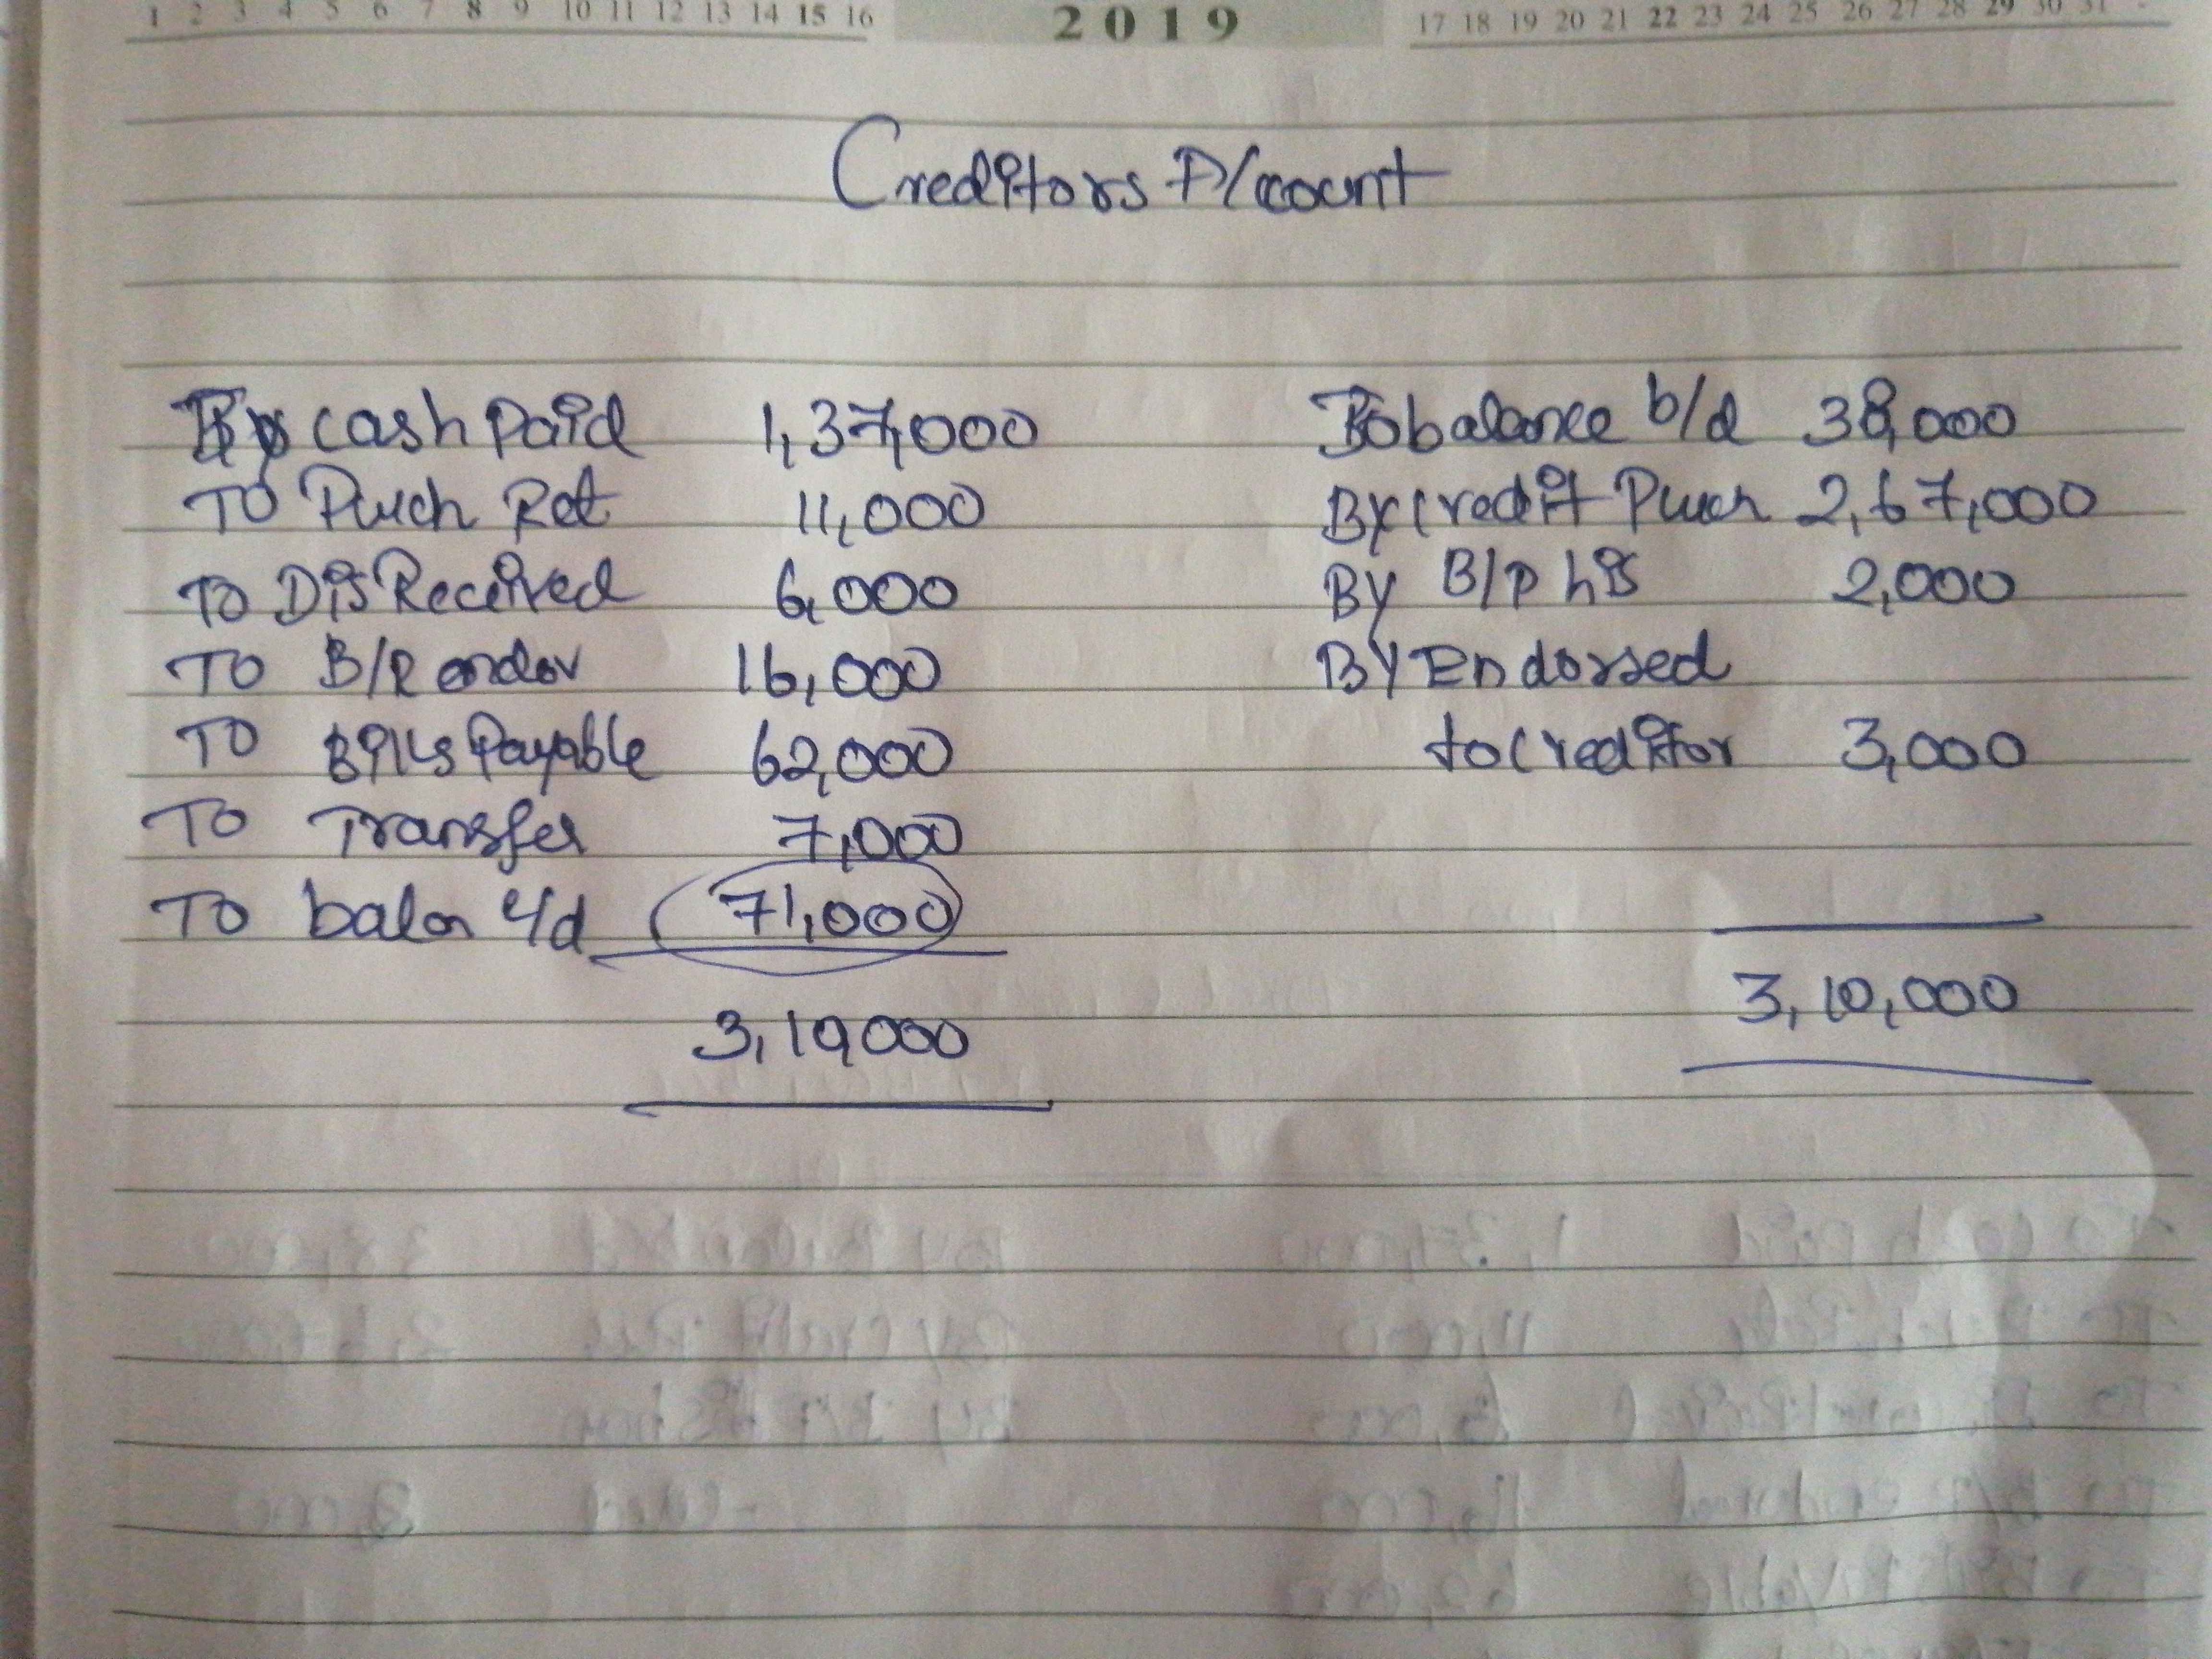 1 2 3 4 5 6 7 8 9 10 11 12 13 14 15 16 2019 17 18 19 20 21 22 23 24 25 26 27 28 29 30 31
Creditors A/ccount
cash Paid 1,37,000 balance b/d 38,000
TO Purch Ret 11,000 By Credit Purch 2,67,000
To Dis Received 6,000 By B/P 2,000
TO B/R endor 16,000 By Endorsed
TO Bills Payable 62,000 to Creditor 3,000
TO Transfer 7,000
TO balan c/d 71,000
3,10,000
3,10,000